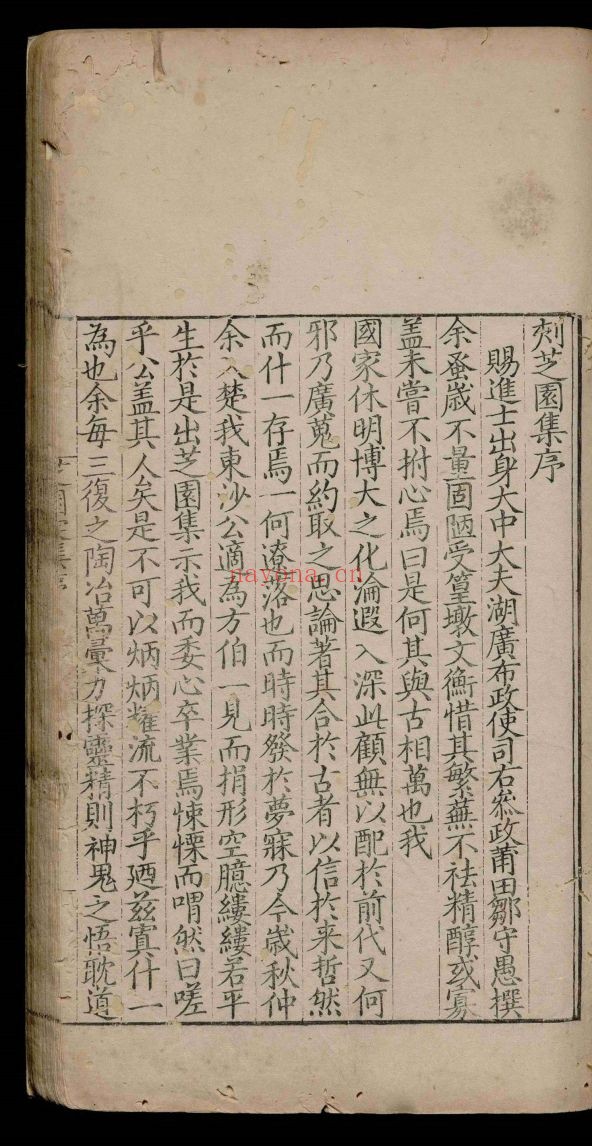 刻芝園集序
賜進士出身大中大夫湖廣布政使司右叅政莆田鄒守愚撰
余蚤歲不量固陋受篁墩文衡惜其繁蕪不袪精醇或寡
盖未嘗不拊心焉曰是何其與古相萬也我
國家休明博大之化淪遐入深此顧無以配於前代又何
邪乃廣蒐而約取之思論著其合於古者以信於来哲然
而什一存焉一何遼落也而時時發於夢寐乃今歲秋仲
余入楚我東沙公適為方伯一見而捐形空臆縷縷若平
生於是出芝園集示我而委心卒業焉悚慄而喟然曰嗟
乎公盖其人矣是不可以炳炳耀流不朽乎廼茲寘什一
為也余每三復之陶冶萬彙力探靈精則神鬼之悟耽道
nayona.cn